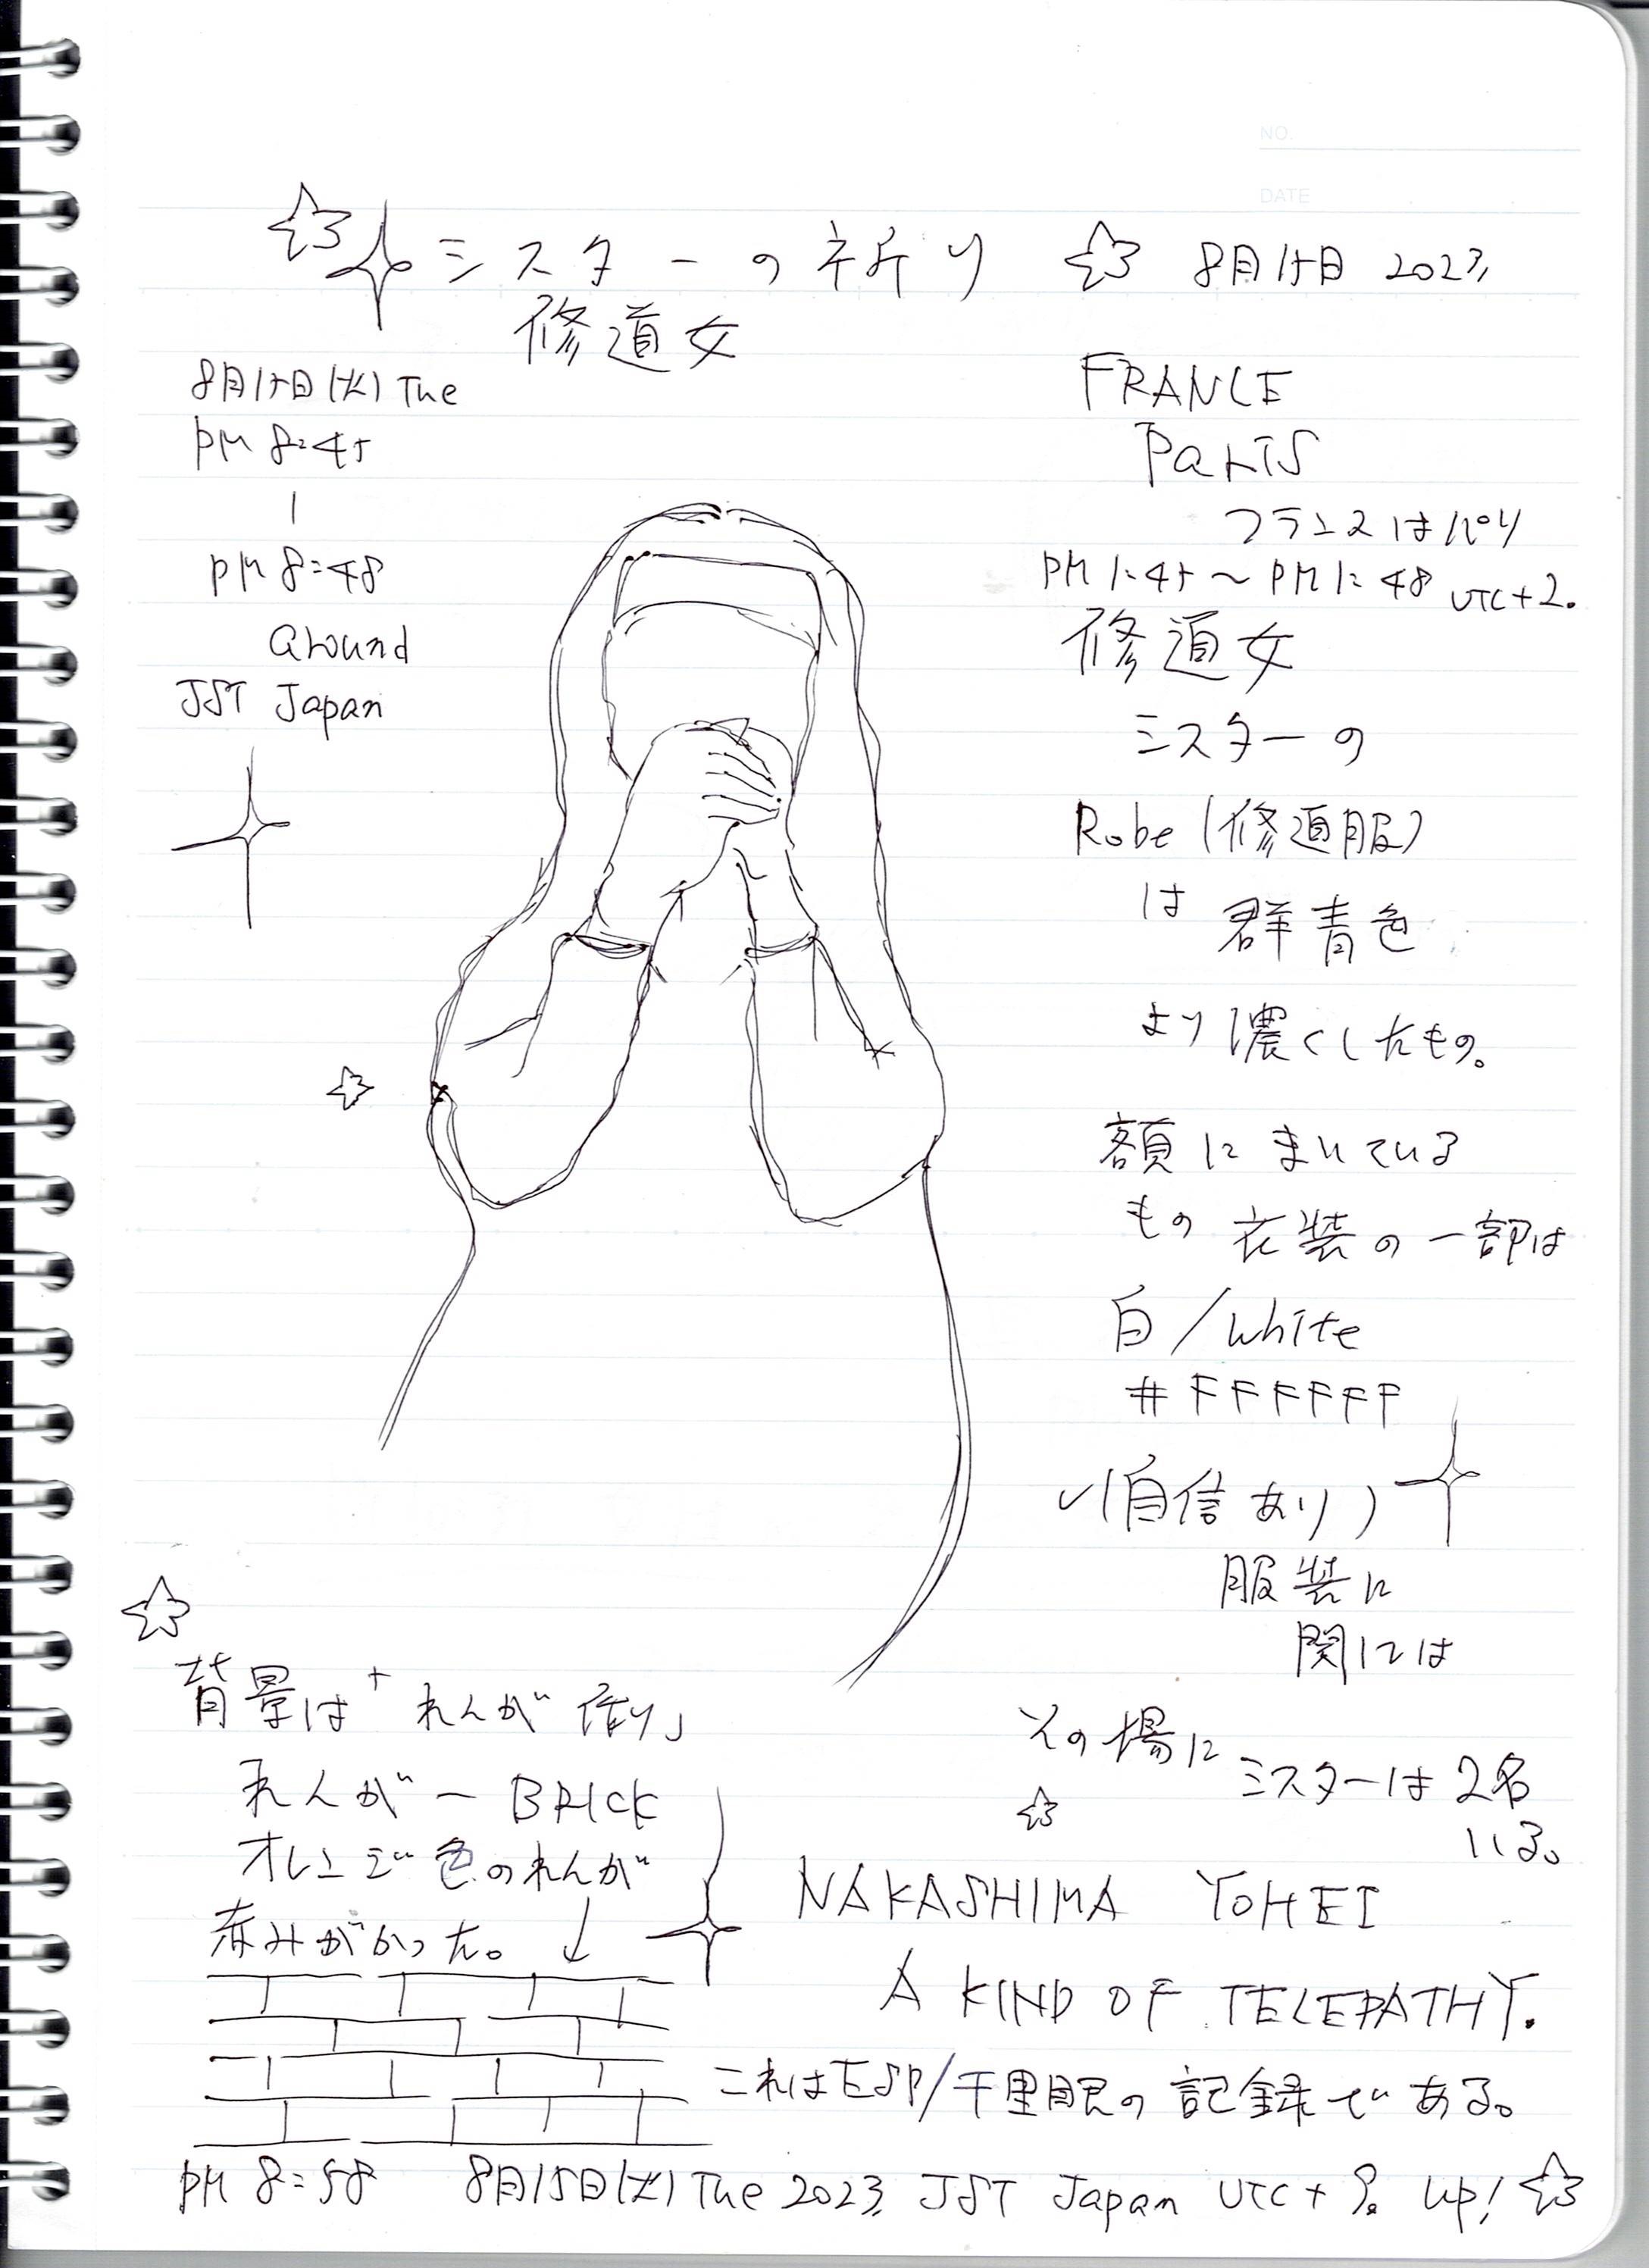 NO.
DATE
シスターの祈り 8月15日 2023,
修道女
8月15日(火) Tue
PM 8:45
|
PM 8:48
around
JST Japan
FRANCE
Paris
フランスはパリ
PM 1:45〜PM 1:48 UTC+2.
修道女
シスターの
Robe(修道服)
は 群青色
より濃くしたもの。
額にまいている
もの 衣装の一部は
白/white
#FFFFFF
✓(自信あり)
服装に
関しては
その場に シスターは2名
いる。
背景は「れんが造り」
れんが ー BRICK
オレンジ色のれんが
赤みがかった。 ↓
NAKASHIMA YOHEI
A KIND OF TELEPATHY.
これはESP/千里眼の記録である。
PM 8:58 8月15日(火) Tue 2023, JST Japan UTC+9. up!